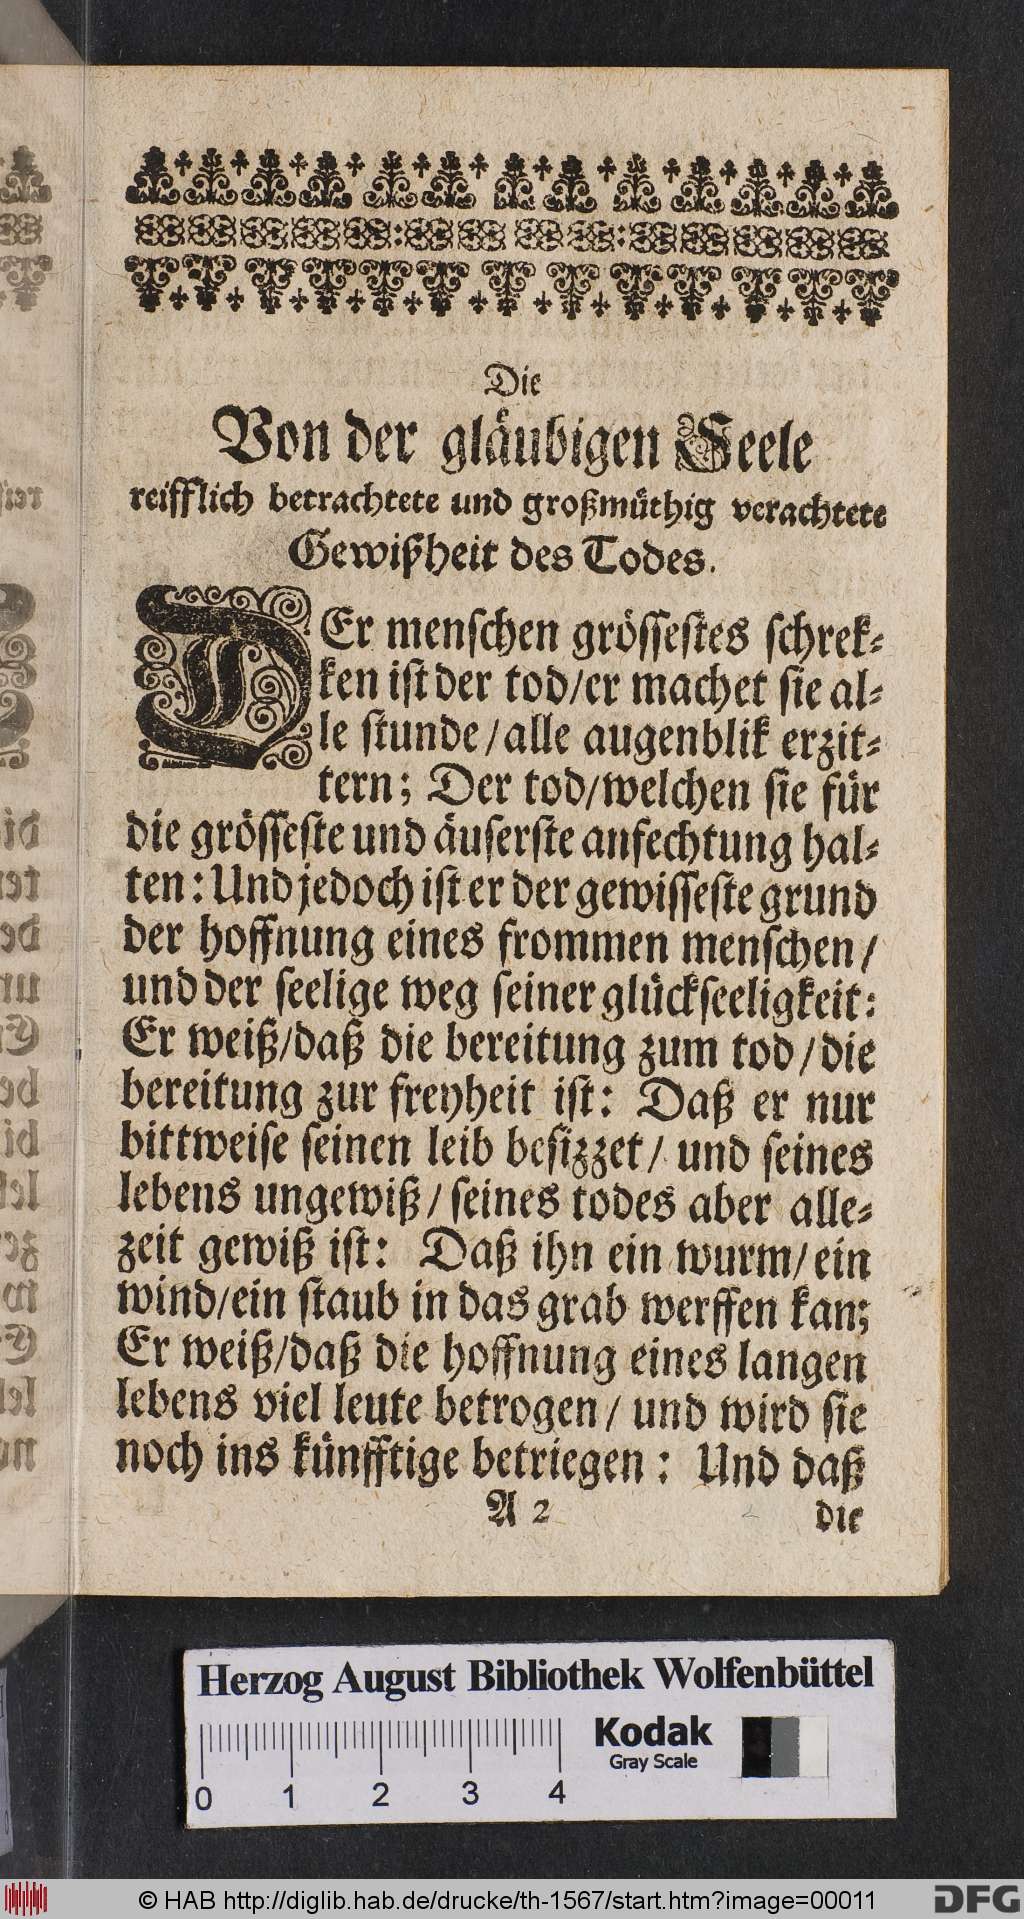 Die
Von der gläubigen Seele
reifflich betrachtete und großmüthig verachtete
Gewißheit des Todes.
DEr menschen grössestes schrek-
ken ist der tod/er machet sie al-
le stunde/alle augenblik erzit-
tern; Der tod/welchen sie für
die grösseste und äuserste anfechtung hal-
ten: Und jedoch ist er der gewisseste grund
der hoffnung eines frommen menschen/
und der seelige weg seiner glückseeligkeit:
Er weiß/daß die bereitung zum tod/die
bereitung zur freyheit ist: Daß er nur
bittweise seinen leib besizzet/ und seines
lebens ungewiß/seines todes aber alle-
zeit gewiß ist: Daß ihn ein wurm/ein
wind/ein staub in das grab werffen kan;
Er weiß/daß die hoffnung eines langen
lebens viel leute betrogen/ und wird sie
noch ins künfftige betriegen: Und daß
A 2 die
Herzog August Bibliothek Wolfenbüttel
Kodak
Gray Scale
0 1 2 3 4
© HAB http://diglib.hab.de/drucke/th-1567/start.htm?image=00011
DFG